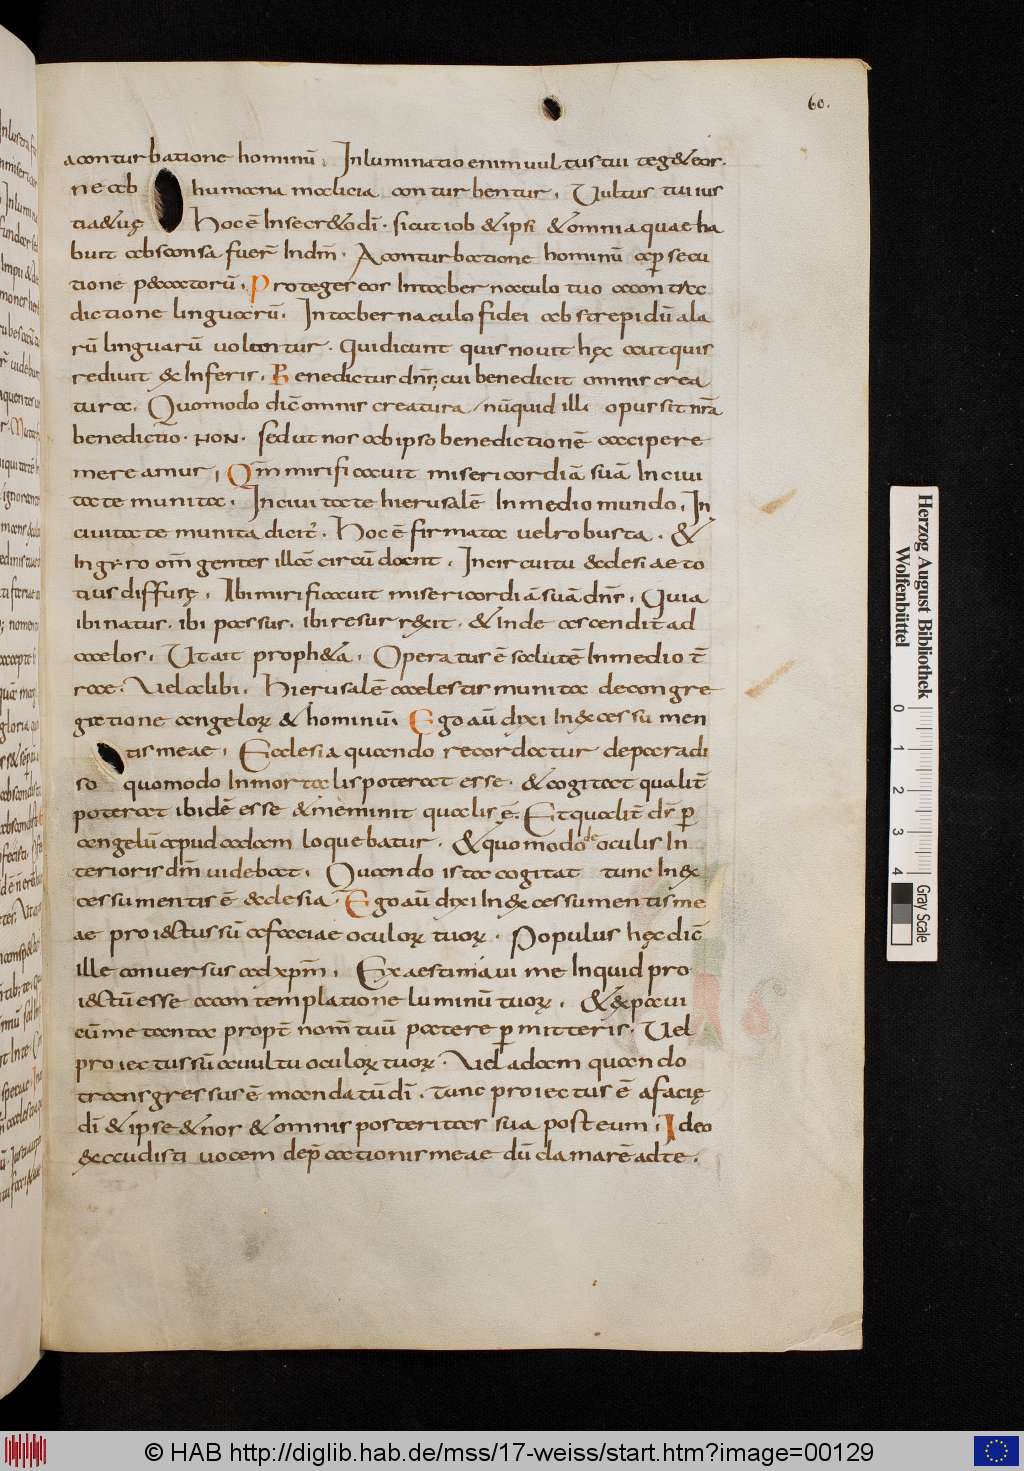 60.
a conturbatione hominū. Inluminatio enim uultus tui teg&eos.
ne ab humana malicia conturbentur. Uultus tui ius
tia&uę Hoc ē Insecr&odī. sicut iob &ipsi &omnia quae ha
buit absconsa fuer̄ Indm̄. Aconturbatione hominū a p̱secu
tione p&cactorū. Proteges eos Intabernaculo tuo a contra
dictione linguarū. Intabernaculo fidei ab strepidū ala
rū linguarū uoluntur. Quidicunt quis nouit hęc aut quis
rediuit &Inferis. Benedictus dn̄s, cui benedicit omnis crea
tura. Quomodo dic̄ omnis creatura, nūquid illi opus sit nr̄a
benedictio. NON. sed ut nos ab ipso benedictionē accipere
mereamur, Qm̄ mirificauit misericordiā suā In ciui
tate munita. In ciuitate hierusalē Inmedio mundo, In
ciuitate munita dicit. Hoc ē firmata uel robusta. &
In gyro om̄ gentes illā circū dant. In circuitu &clesiae to
tius diffusę. Ibi mirificauit misericordiā suā dn̄s, Quia
ibi natus. ibi passus. ibi resurr&it. & inde ascendit ad
caelos, Ut ait proph&a, Operatus ē salutē Inmedio t̄
rae. Vel alibi. Hierusalē caelestis munita de congre
gatione angelorꝝ & hominū. Ego aū dixi In&cessu men
tis meae, Ecclesia quando recordatur de paradi
so quomodo Inmortalis poterat esse. & cogitat qualit̄
poterat ibidē esse & meminit qualis ē. Et qualit̄ ds̄ p̱
angelū apud adam loquebatur. & quomodo de oculis In
terioris dm̄ uidebat. Quando ista cogitat tunc In &
cessu mentis ē &clesia. Ego aū dixi In&cessu mentis me
ae proiectus sū a faciae oculorꝝ tuorꝝ. Populus hęc dic̄
ille conuersus ad xpm̄. Ex aestimaui me Inquid pro
iectū esse a contemplatione luminū tuorꝝ. & &paui
eū me tanta propt̄ nom̄ tuū patere p̱mitteris. Uel
proiectus sū a uultu oculorꝝ tuorꝝ. Vel adam quando
transgressus ē mandatū dī. Tunc proiectus ē a facię
dī & ipse & nos & omnis posteritas sua post eum, Ideo
&audisti uocem dep̄cationis meae dū clamarē ad te.
Herzog August Bibliothek
Wolfenbüttel
0 1 2 3 4
Gray Scale
© HAB http://diglib.hab.de/mss/17-weiss/start.htm?image=00129